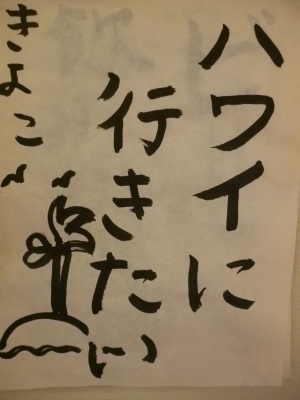 ハワイに
行きたい
きよこ